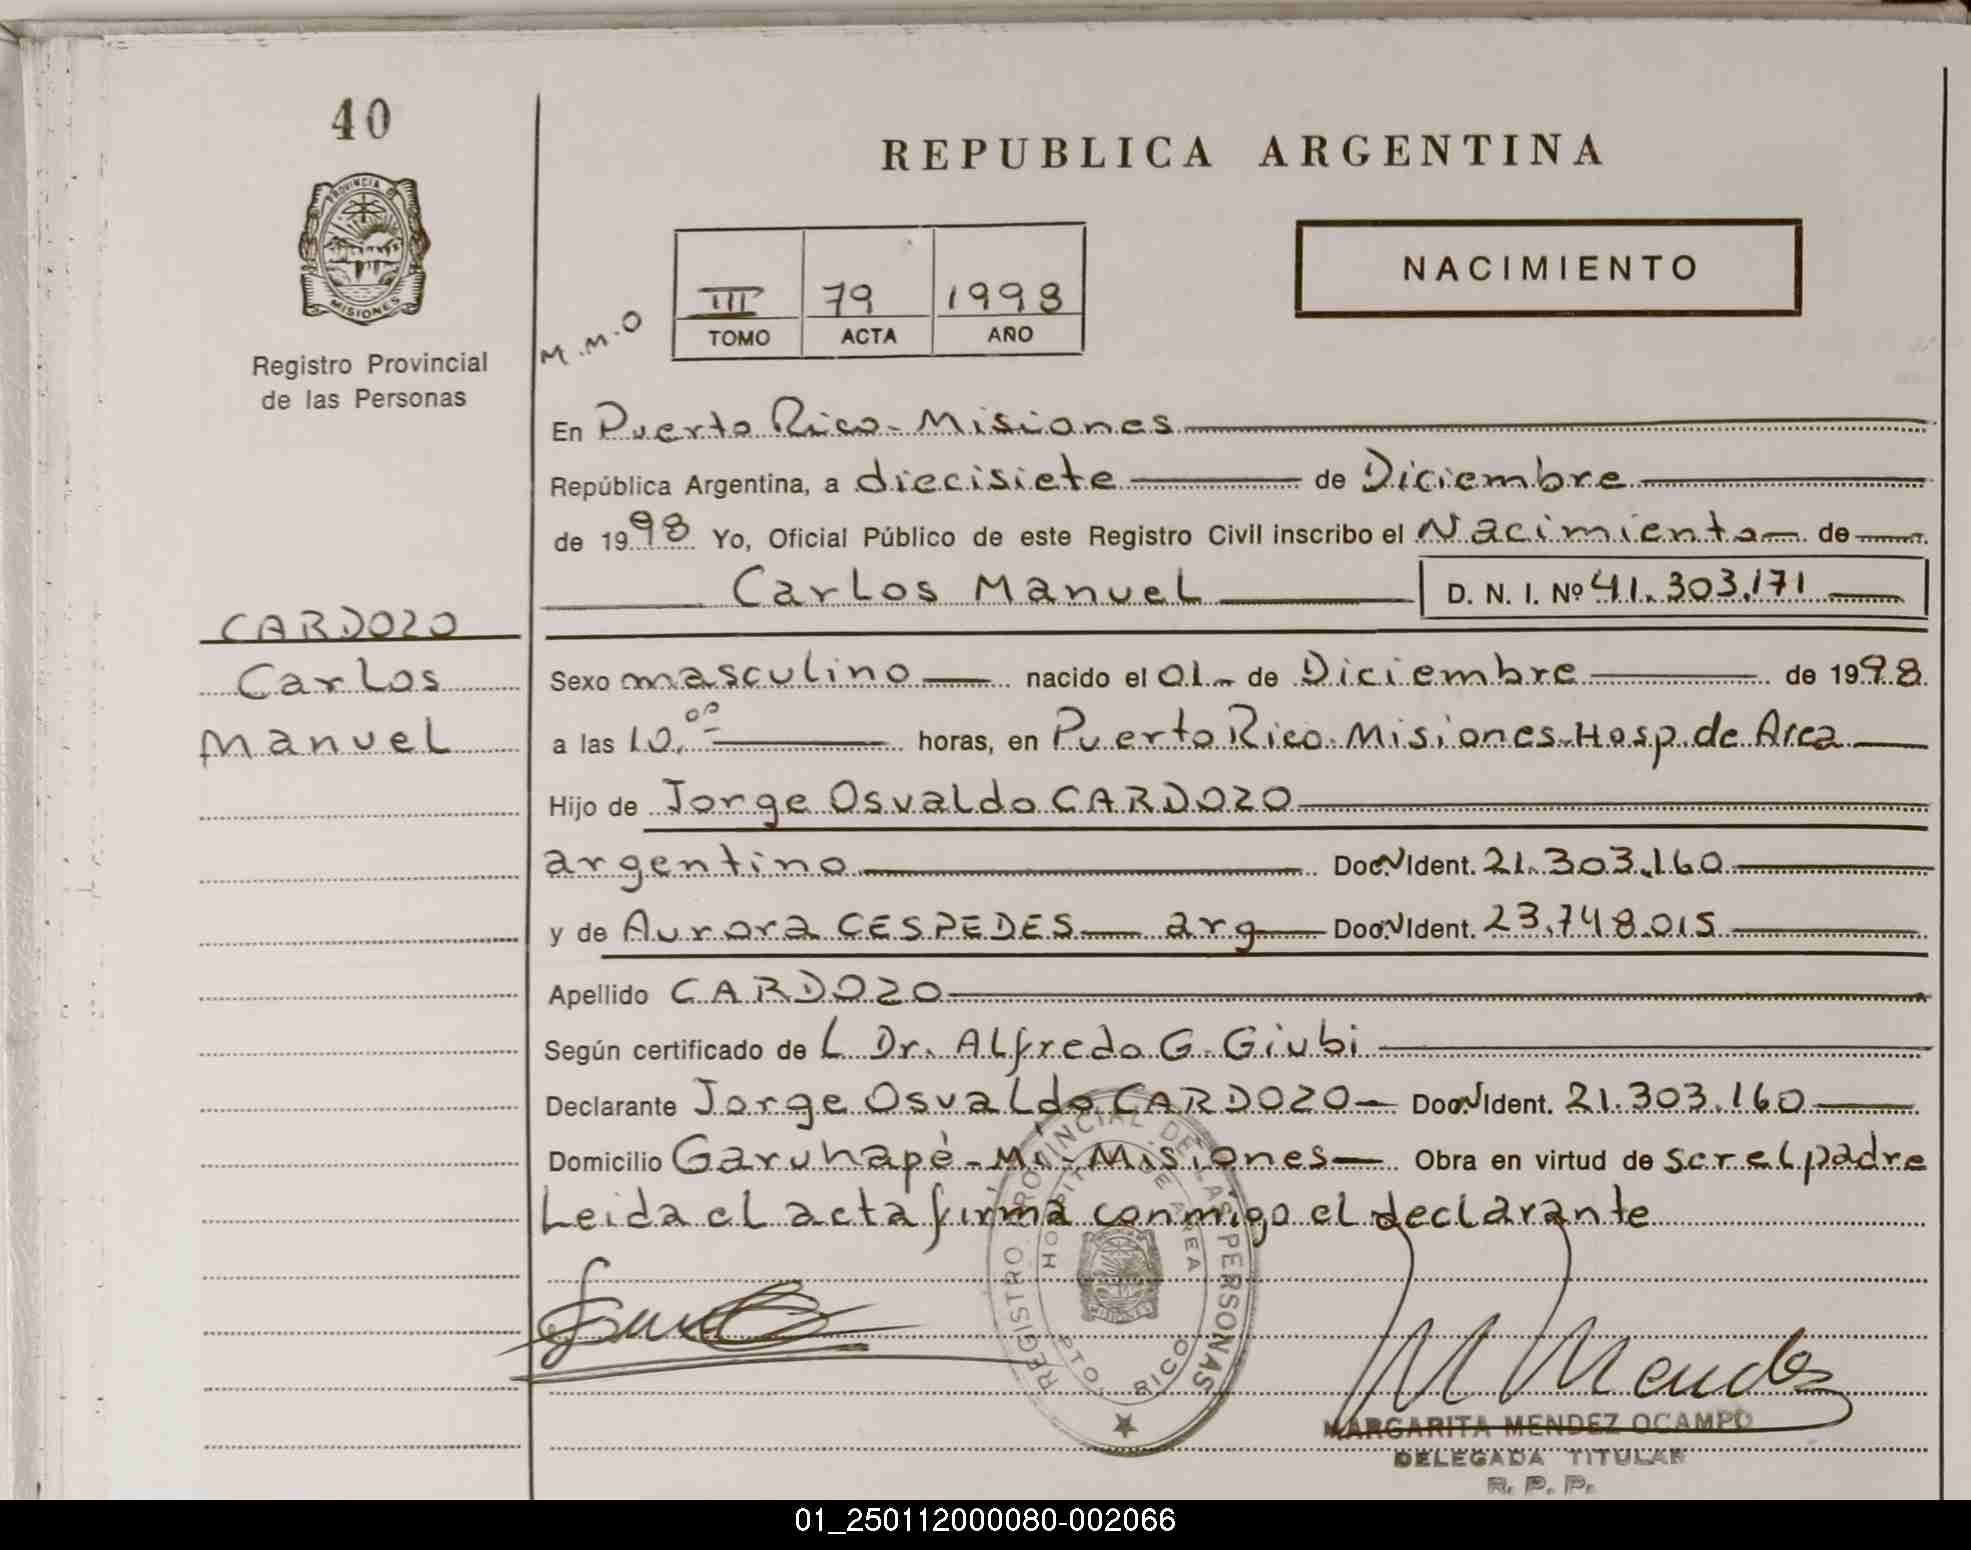 40
REPUBLICA ARGENTINA
PROVINCIA DE
MISIONES
Registro Provincial
de las Personas
NACIMIENTO
III 79 1998
TOMO ACTA AÑO
M.M.O
En Puerto Rico - Misiones
República Argentina, a diecisiete de Diciembre
de 1998 Yo, Oficial Público de este Registro Civil inscribo el Nacimiento de
Carlos Manuel D. N. I. Nº 41.303.171
CARDOZO
Carlos
Manuel
Sexo masculino nacido el 01 - de Diciembre de 1998
a las 10.oo horas, en Puerto Rico - Misiones - Hosp. de Area
Hijo de Jorge Osvaldo CARDOZO
argentino Doc. N Ident. 21.303.160
y de Aurora CESPEDES arg Doc. N Ident. 23.748.015
Apellido CARDOZO
Según certificado de L Dr. Alfredo G. Giubi
Declarante Jorge Osvaldo CARDOZO Doc. N Ident. 21.303.160
Domicilio Garuhapé - Mí - Misiones Obra en virtud de ser el padre
Leida el acta firma conmigo el declarante
REGISTRO PROVINCIAL DE LAS PERSONAS
HOSPITAL DE AREA
PTO. RICO
M Mendez
MARGARITA MENDEZ OCAMPO
DELEGADA TITULAR
R. P. P.
01_250112000080-002066